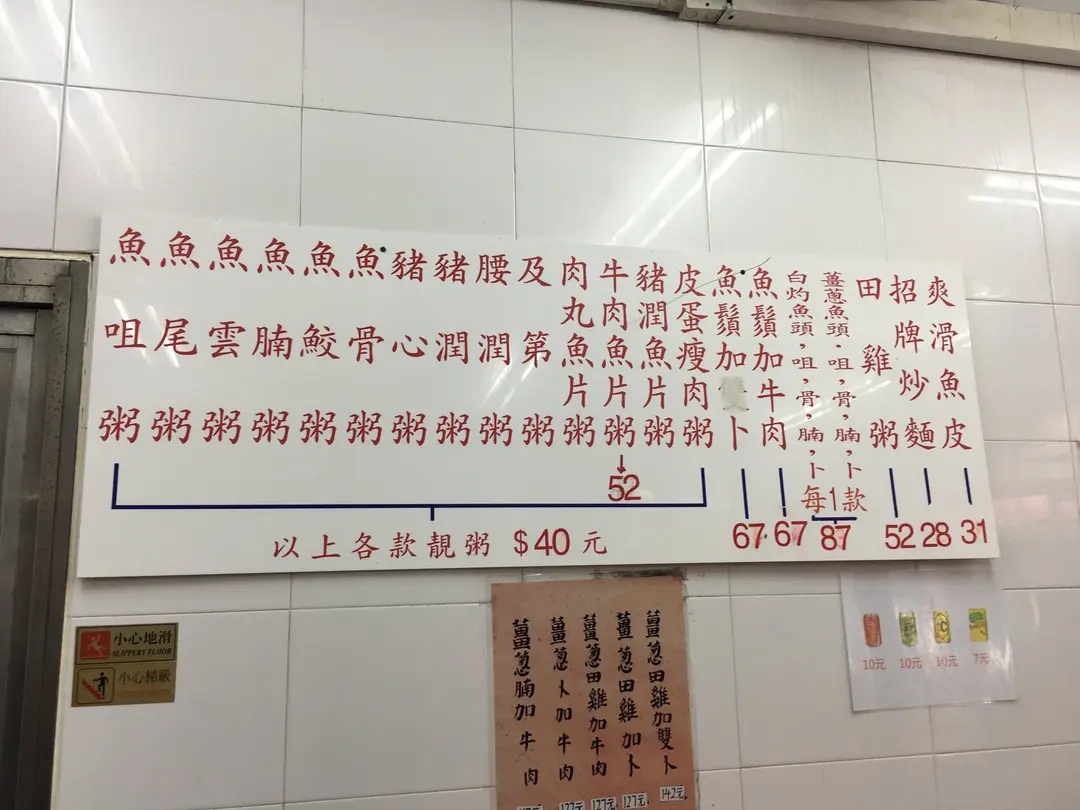 魚咀粥
魚尾粥
魚雲粥
魚腩粥
魚鮫粥
魚骨粥
豬心粥
豬潤粥
腰潤粥
及第粥
肉丸魚片粥
牛肉魚片粥
52
豬潤魚片粥
皮蛋瘦肉粥
以上各款靚粥 $40 元
魚鬚加卜
67
魚鬚加牛肉
67
白灼魚頭,咀,骨,腩,卜
薑蔥魚頭.咀,骨,腩,卜
每1款
87
田雞粥
52
招牌炒麵
28
爽滑魚皮
31
小心地滑
SLIPPERY FLOOR
小心梯級
薑葱腩加牛肉
薑葱卜加牛肉
127元
薑葱田雞加牛肉
127元.
薑葱田雞加卜
127元.
薑葱田雞加雙卜
142元.
10元
10元
10元
7元